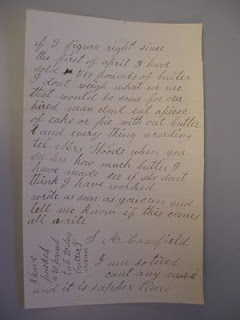 if I figure right since
the first of april I have
sold 200 pounds of butter
I dont weigh what we use
that would be some for our
hired man dont eat a piece
of cake or pie with out butter
and every thing acording
tel Mrs Woods when you
see her how much butter I
have made see if she dont
think I have worked
wrote as soon as you can and
lett me know if this comes
all write
S A Camfield
I am so tired
cant any more
and it is supper time
I have
packed
a 20 pound
tub to day
butter I
mean